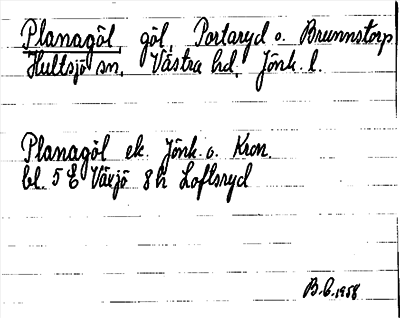 Planagöl, göl, Portaryd o. Brunnstorp
Hultsjö sn. Västra hd. Jönk. l.
Planagöl ek. Jönk. o. Kron.
bl. 5 E Växjö 8 h Loftsryd
B.C. 1958